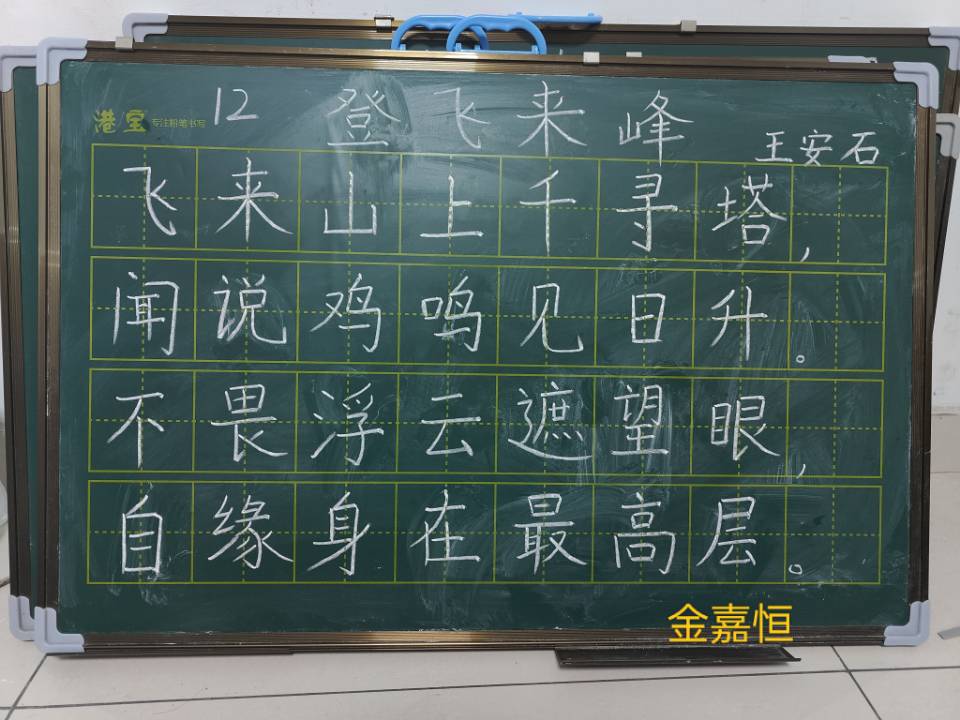 港宝 专注粉笔书写
12 登飞来峰
王安石
飞来山上千寻塔,
闻说鸡鸣见日升。
不畏浮云遮望眼,
自缘身在最高层。
金嘉恒